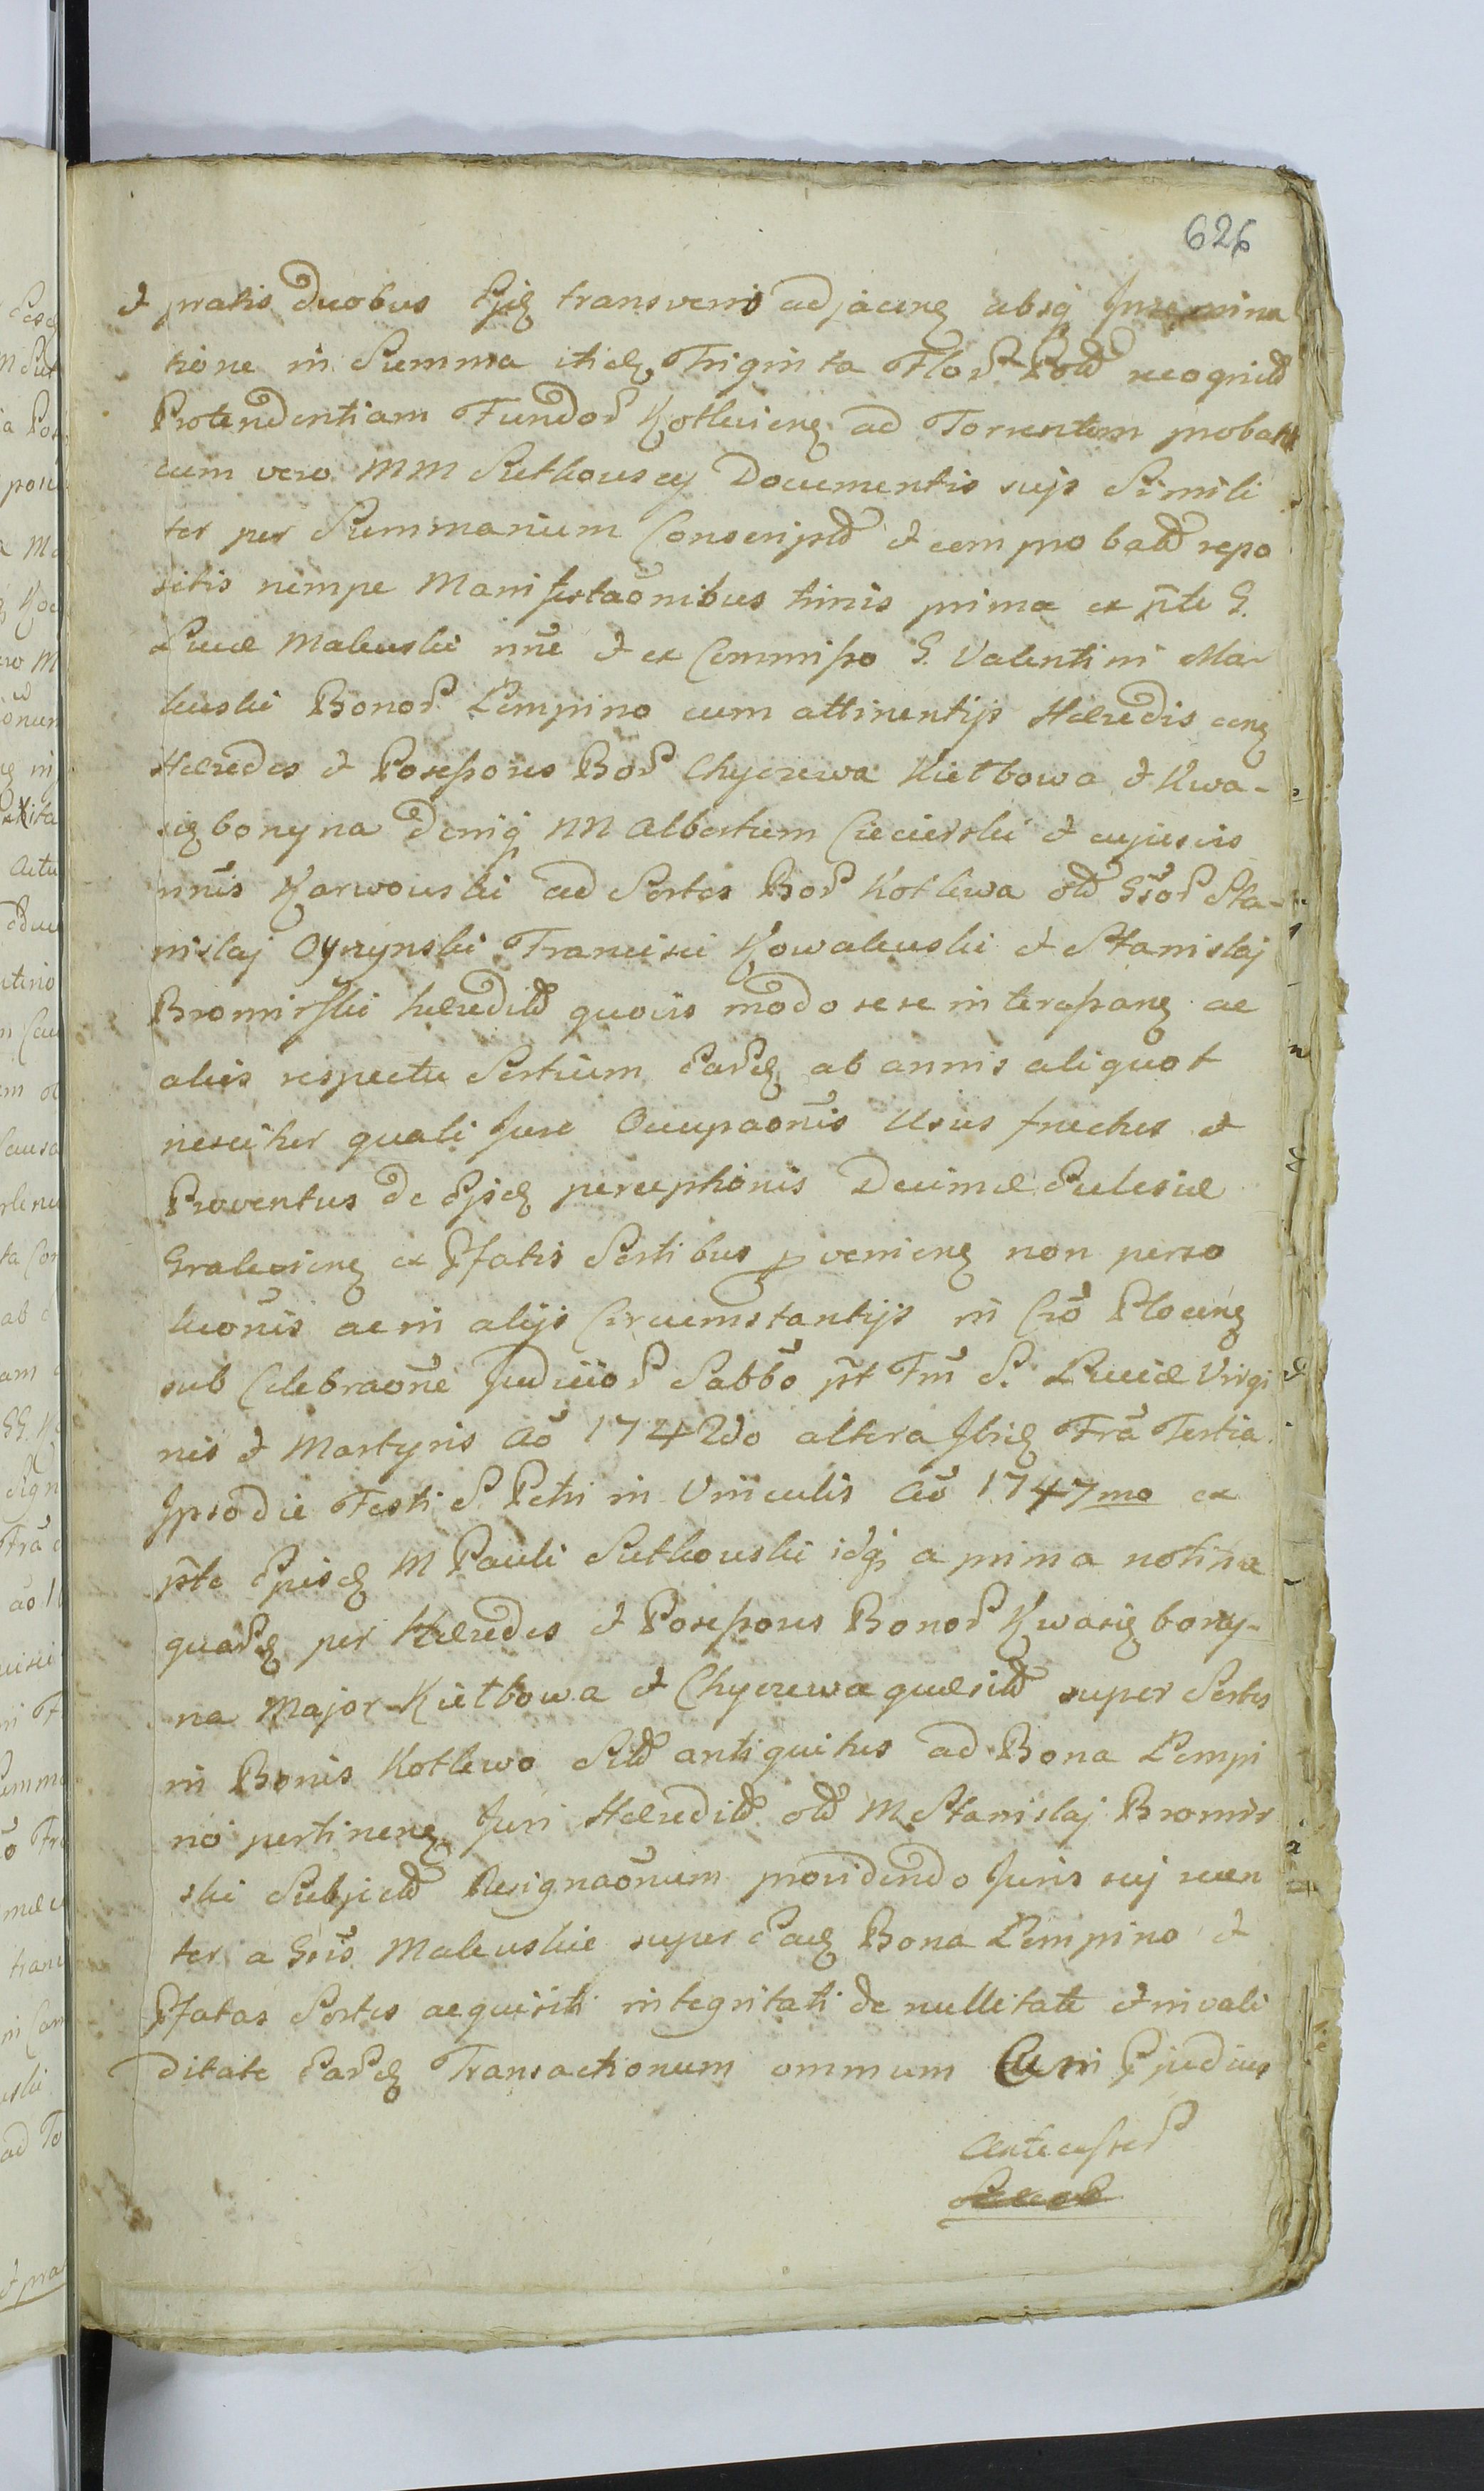 626
et pratis duobus Ejsdē transversis adjacenē absq; Intermina
tione in Summa itidē Triginta Flor. Pold recognitd
Protendentiam Fundor Kotleviens ad Torrentem probatt
cum vero MM Sutkouscy Documentis sujs Simili
ter per Summarium Conscriptd et comprobatd repo
sitis nempe Manifestaōnibus binis prima ex pte G.
Lucæ Maleuski nnē et ex Commisso G. Valentini Ma-
leuski Bonor Lempino cum attinentijs Hæredis cong
Hæredes et Possessores Bor Chyczewa Kiełbowa et Kwa-
siębonyna deniq; NN Albertum Ciecierski et cujusvis
nnis Karwouski ad Sortes Bor Kotlewa old Gsor Sta-
nislaj Oyrzynski Francisci Kowaleuski et Stanislaj
Bromirski hæreditd quovis modo sese interessang ac
alias respectu Sortium Eardē ab annis aliquot
nescitur quali Jure Occupaōnis Usus fructus et
Proventus de Ejsdē perceptionis Decimæ Eclesiæ
Graleviens ex Pfatis Sortibus proveniens non perso
lucōnis ac in alijs Circumstantijs in Cro Plocens
sub Celebraōne Judicior Sabbo pt Fm S. Luciæ Virgi
nis et Martyris Aō 1742do altera Ibidē Fra Tertia
Ipso die Festi S. Petri in Vinculis Aō 1747mo ex
pte Ejusdē M Pauli Sutkouski idq; a prima notitia
quardē per Hæredes et Possessores Bonor Kwasiębony-
na Major Kiełbowa et Chyczewa quæsitd super Sortes
in Bonis Kotlewo Sitd antiquitus ad Bona Lempi
no pertinens Juri Hæreditd old M Stanislaj Bromir
ski Subjectd Resignaōnum providendo Juris suj recen
ter a Gsis Maleuskie super Eadē Bona Lempino et
Pfatas Sortes acquisiti integritati de nullitate et invali
ditate Eardē Transactionum omnium Cum Pjudicus
Antecessor